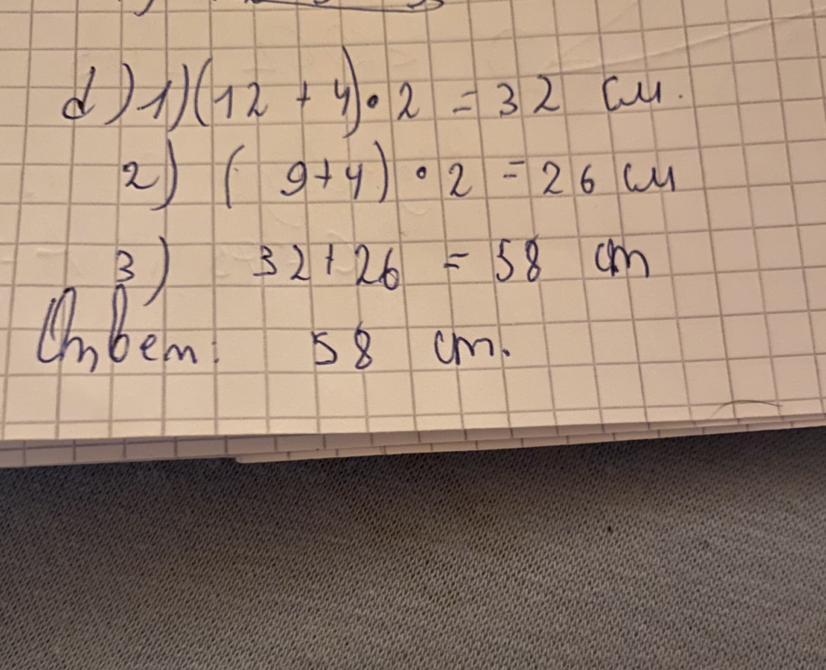 d) 1) (12 + 4) • 2 = 32 см.
2) ( 9+4) • 2 = 26 см
3) 32+26 = 58 cm
Ответ: 58 cm.